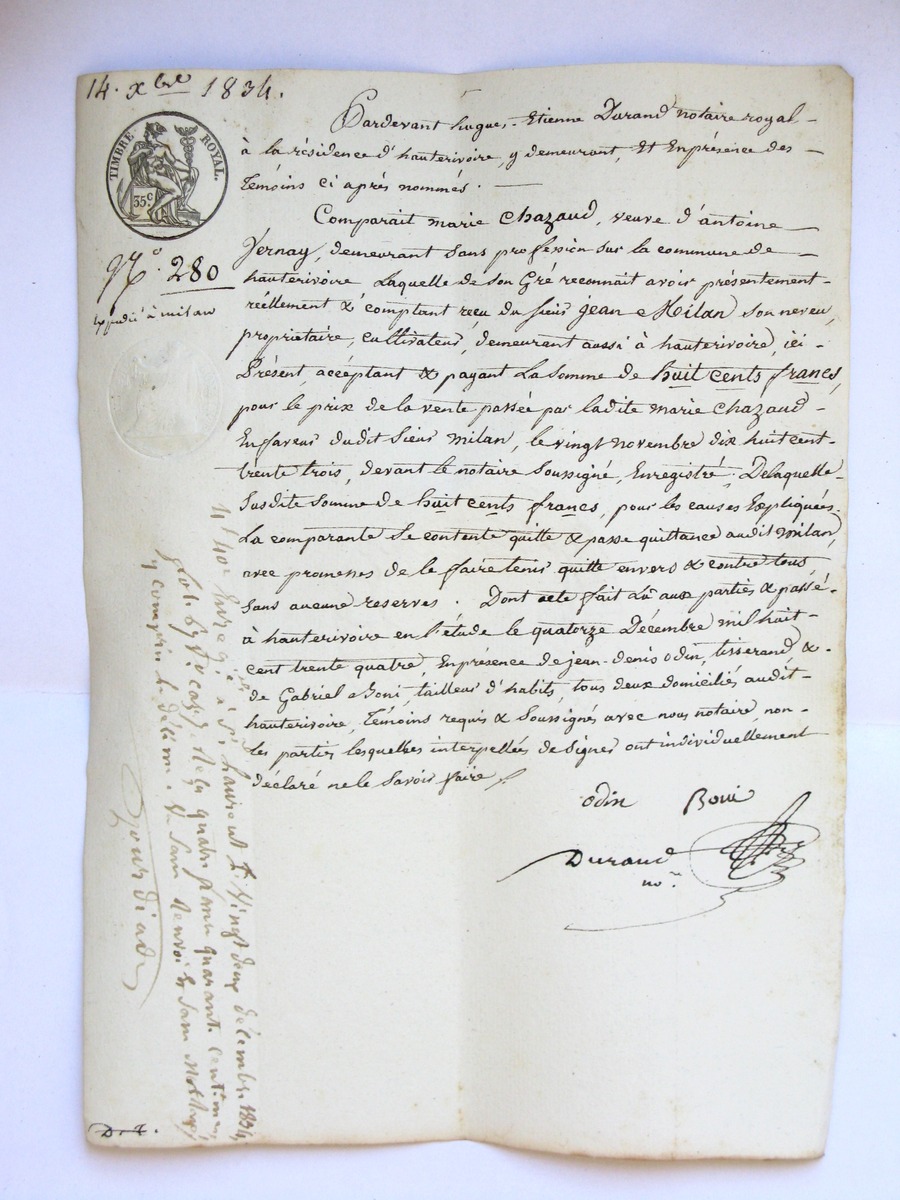 14. Xbre 1834.
TIMBRE ROYAL.
35c
No. 280
Expédié à milan
Pardevant hugues-Etienne Durand notaire royal
à la résidence d'hauterivoire, y demeurant, Et En présence des
Témoins ci après nommés.
Comparait marie Chazaud, veuve d'antoine
Vernay, demeurant sans profession sur la commune de
hauterivoire Laquelle de son Gré reconnait avoir présentement
réellement & comptant reçu du sieur jean Milan son neveu,
propriétaire, cultivateur, demeurant aussi à hauterivoire, ici
Présent, acceptant & payant La somme de huit cents francs,
pour le prix de la vente passée par ladite marie Chazaud
En faveur dudit Sieur milan, le vingt novembre dix huit cent
trente trois, devant le notaire soussigné, Enregistré. De laquelle
Susdite Somme de huit cents francs, pour les causes Expliquées.
La comparante Se contente quitte & passe quittance audit milan,
avec promesses de le faire tenir quitte envers & contre tous
sans aucune reserves. Dont acte fait Lû aux parties & passé
à hauterivoire en l'étude le quatorze Décembre mil huit
cent trente quatre, En présence de jean-denis Odin, tisserand &
de Gabriel Boni, tailleur d'habits, tous deux domiciliés audit
hauterivoire, Témoins requis & Soussignés avec nous notaire, non
Les parties lesquelles interpellées de signer ont individuellement
déclaré ne le savoir faire
odin Boni
Durand
no.re
4f 40c Enregié à St Laurent le Vingt deux décembre 1834,
fol. 69 Vo Cas 7. Reçu quatre francs quarante centimes
y compris le décime. & sans renvoi ni sans mot rayé
D. T.